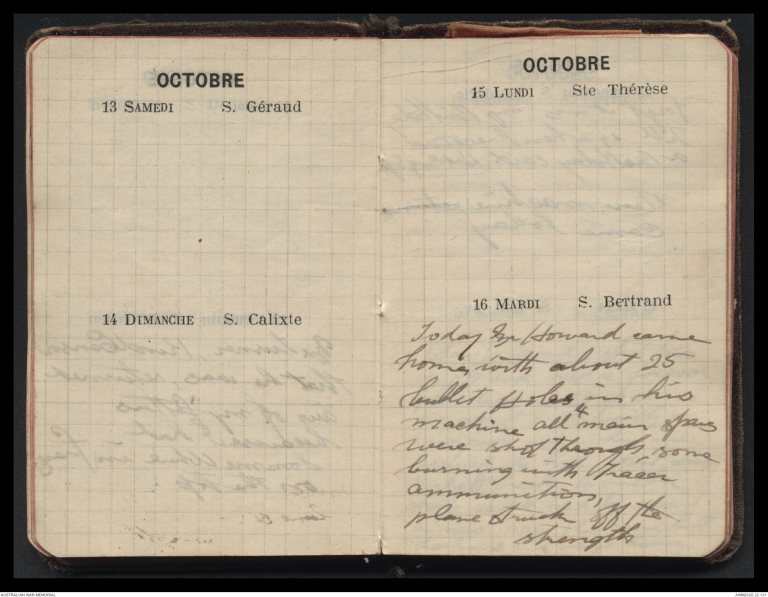 OCTOBRE
13 SAMEDI S. Géraud
14 DIMANCHE S. Calixte
OCTOBRE
15 LUNDI Ste Thérèse
16 MARDI S. Bertrand
Today Mr Howard came
home with about 25
bullet Holes in his
machine all 4 main spars
were shot through, some
burning with Tracer
ammunition,
plane struck off the
strength
AUSTRALIAN WAR MEMORIAL